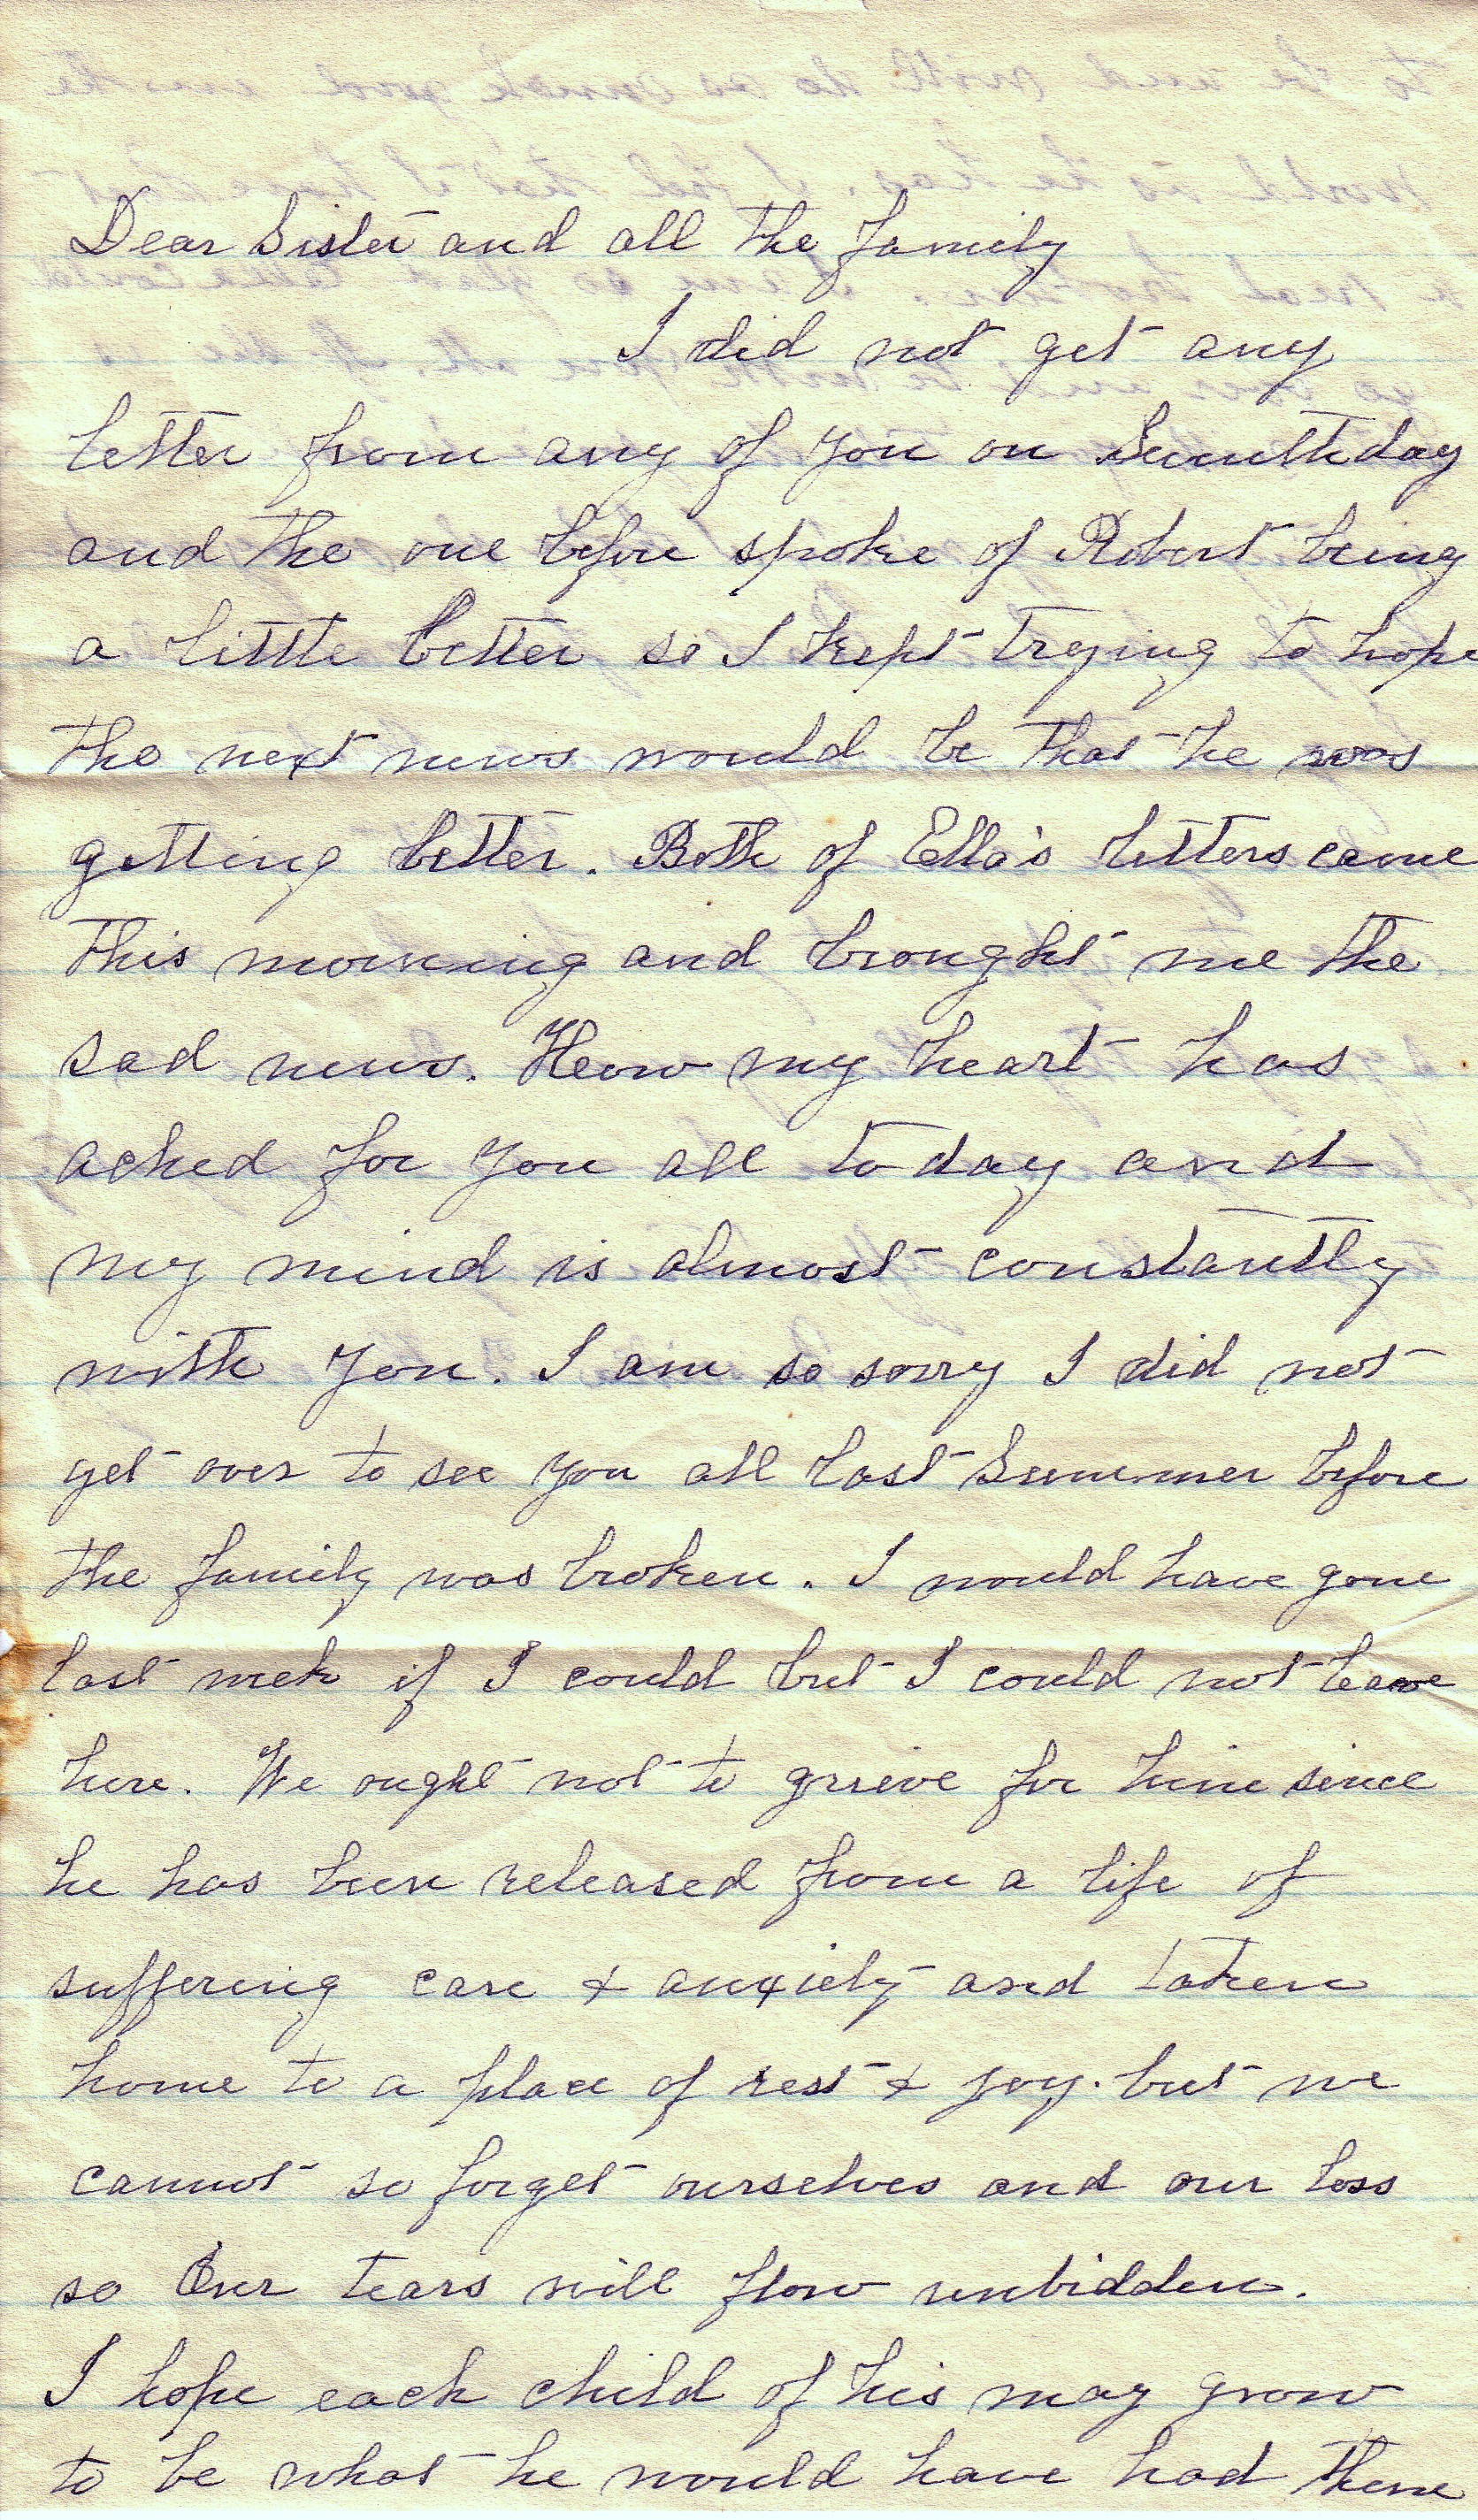 Dear Sister and all the family
I did not get any
letter from any of you on
and the one before spoke of Robert being
a little better so I kept trying to hope
the next news would be that he was
getting better. Both of Ella's letters came
this morning and brought me the
sad news. How my heart has
ached for you all today and
my mind is almost constantly
with you. I am so sorry I did not
get over to see you all last Summer before
the family was broken. I would have gone
last week if I could but I could not leave
here. We ought not to grieve for him since
he has been released from a life of
suffering care & anxiety and taken
home to a place of rest & joy. but we
cannot so forget ourselves and our loss
so Our tears will flow unbidden.
I hope each child of his may grow
to be what he would have had them